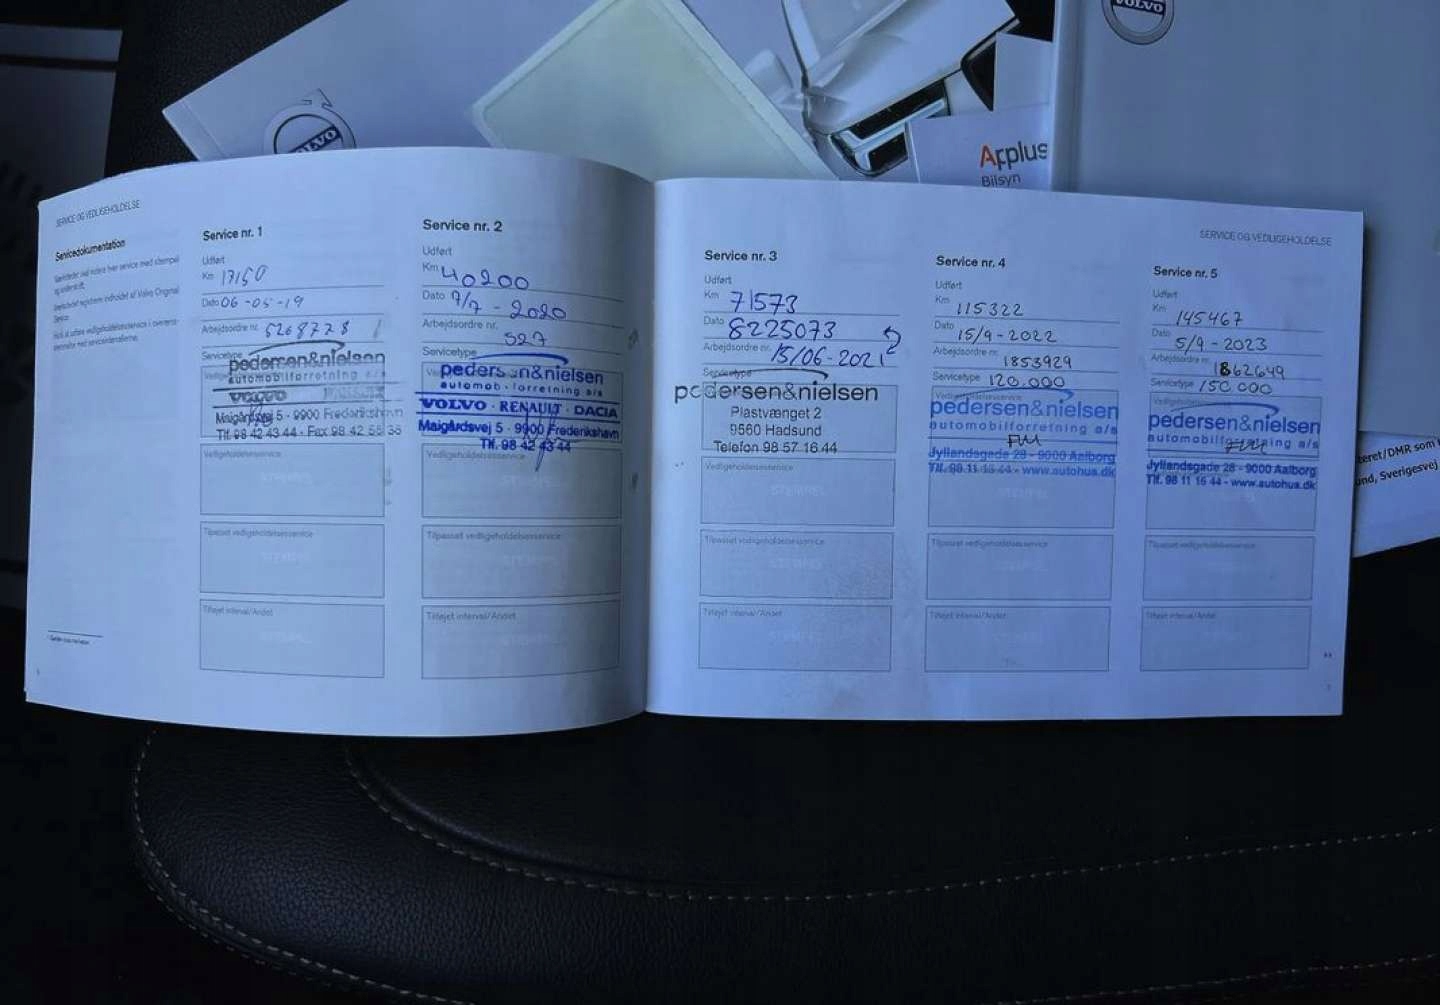 VOLVO
VOLVO
Applus
Bilsyn
SERVICE OG VEDLIGEHOLDELSE
Servicedokumentation
Service nr. 1
Udført
Km 17150
Dato 06-05-19
Arbejdsordre nr. 5268728
Servicetype
pedersen&nielsen
automobilforretning a/s
VOLVO
Maigårdsvej 5 - 9900 Frederikshavn
Tlf. 98 42 43 44 - Fax 98 42 56 36
Vedligeholdelsesservice
STEMPEL
Tilpasset vedligeholdelsesservice
STEMPEL
Tilføjet interval/Andet
STEMPEL
Service nr. 2
Udført
Km 40200
Dato 9/7 - 2020
Arbejdsordre nr.
527
Servicetype
pedersen&nielsen
automobilforretning a/s
VOLVO · RENAULT · DACIA
Maigårdsvej 5 - 9900 Frederikshavn
Tlf. 98 42 43 44
Vedligeholdelsesservice
STEMPEL
Tilpasset vedligeholdelsesservice
STEMPEL
Tilføjet interval/Andet
STEMPEL
SERVICE OG VEDLIGEHOLDELSE
Service nr. 3
Udført
Km 71573
Dato 8225073
Arbejdsordre nr. 15/06-2021
Servicetype
pedersen&nielsen
Plastvænget 2
9560 Hadsund
Telefon 98 57 16 44
Vedligeholdelsesservice
STEMPEL
Tilpasset vedligeholdelsesservice
STEMPEL
Tilføjet interval/Andet
STEMPEL
Service nr. 4
Udført
Km 115322
Dato 15/9-2022
Arbejdsordre nr. 1853929
Servicetype 120.000
pedersen&nielsen
automobilforretning a/s
Jyllandsgade 28 - 9000 Aalborg
Tlf. 98 11 16 44 - www.autohua.dk
STEMPEL
Tilpasset vedligeholdelsesservice
STEMPEL
Tilføjet interval/Andet
STEMPEL
Service nr. 5
Udført
Km 145467
Dato 5/9-2023
Arbejdsordre nr. 1862649
Servicetype 150 000
pedersen&nielsen
automobilforretning a/s
Jyllandsgade 28 - 9000 Aalborg
Tlf. 98 11 16 44 - www.autohua.dk
STEMPEL
Tilpasset vedligeholdelsesservice
STEMPEL
Tilføjet interval/Andet
STEMPEL
eret/DMR som
und, Sverigesvej